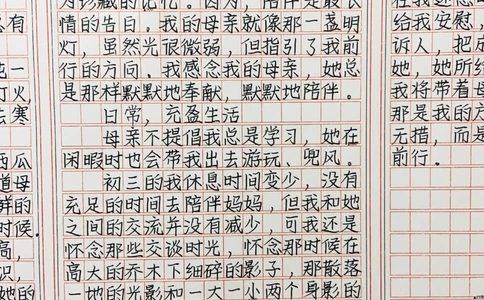 为珍藏的记忆。因为，陪伴是最长
情的告白。我的母亲就像那一盏明
灯，虽然光很微弱，但指引了我前
行的方向。我感念我的母亲，她总
是那样默默地奉献，默默地陪伴。
日常，充盈生活
母亲不提倡我总是学习，她在
闲暇时也会带我出去游玩、兜风。
初三的我休息时间变少，没有
充足的时间去陪伴妈妈，但我和她
之间的交流并没有减少，可我还是
怀念那些交谈时光，怀念那在
高大的乔木下细碎的影子，那散落
一地的光影和一大一小两个身影的
给我安慰，
诉人，把成
她，她所给
我将带着母
那是我的方
无措，而是
前行。